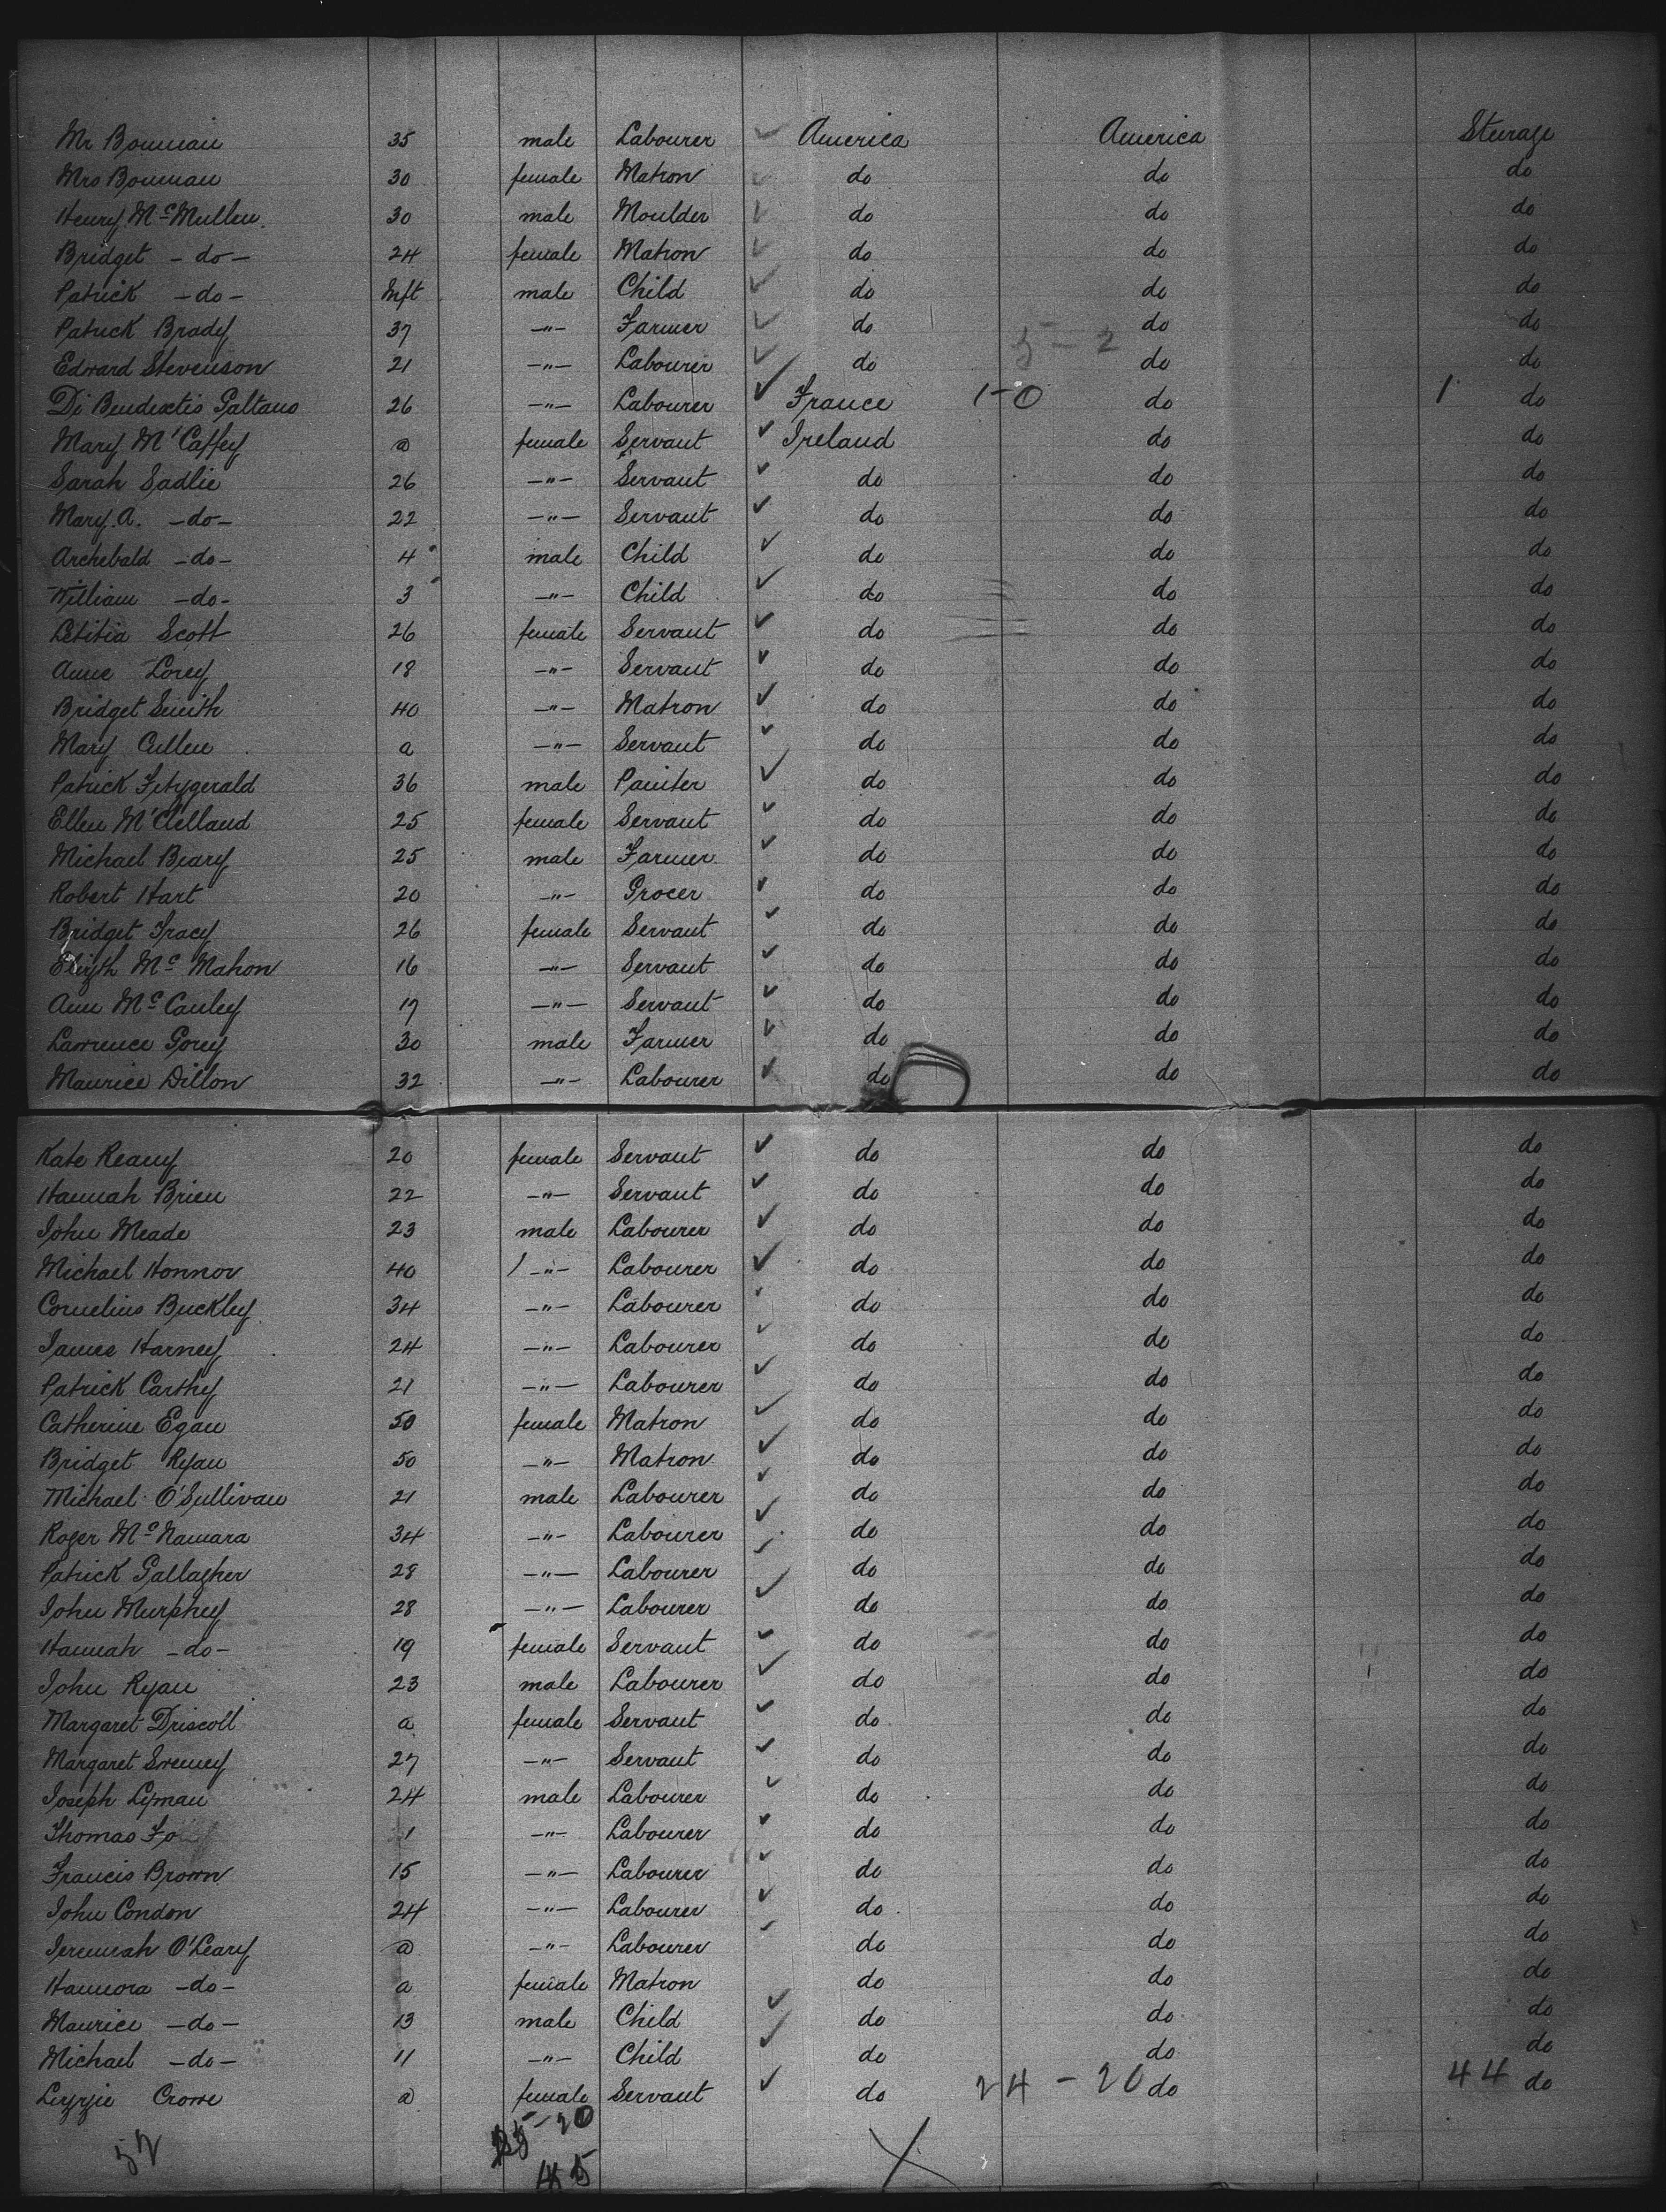 Mr Bowman 35 male Labourer America America Steerage
Mrs Bowman 30 female Matron do do do
Henry McMullen 30 male Moulder do do do
Bridget -do- 24 female Matron do do do
Patrick -do- Inft male Child do do do
Patrick Brady 37 -"- Farmer do do do
5-2
Edward Stevenson 21 -"- Labourer do do do
Di Bendictis Galtano 26 -"- Labourer France 1-0 do 1 do
Mary M'Caffey a female Servant Ireland do do
Sarah Sadlie 26 -"- Servant do do do
Mary A. -do- 22 -"- Servant do do do
Archebald -do- 4 male Child do do do
William -do- 3 -"- Child do do do
Letitia Scott 26 female Servant do do do
Anne Lorey 18 -"- Servant do do do
Bridget Smith 40 -"- Matron do do do
Mary Cullen a -"- Servant do do do
Patrick Fitzgerald 36 male Painter do do do
Ellen M'Clelland 25 female Servant do do do
Michael Beary 25 male Farmer do do do
Robert Hart 20 -"- Grocer do do do
Bridget Tracy 26 female Servant do do do
Elizth Mc Mahon 16 -"- Servant do do do
Ann McCauley 17 -"- Servant do do do
Lawrence Gorey 30 male Farmer do do do
Maurice Dillon 32 -"- Labourer do do do
Kate Reany 20 female Servant do do do
Hannah Brien 22 -"- Servant do do do
John Meade 23 male Labourer do do do
Michael Honnor 40 -"- Labourer do do do
Cornelius Buckley 34 -"- Labourer do do do
James Harney 24 -"- Labourer do do do
Patrick Carthy 21 -"- Labourer do do do
Catherine Egan 50 female Matron do do do
Bridget Ryan 50 -"- Matron do do do
Michael O'Sullivan 21 male Labourer do do do
Roger McNamara 34 -"- Labourer do do do
Patrick Gallagher 28 -"- Labourer do do do
John Murphey 28 -"- Labourer do do do
Hannah -do- 19 female Servant do do do
John Ryan 23 male Labourer do do do
Margaret Driscoll a female Servant do do do
Margaret Sweeney 27 -"- Servant do do do
Joseph Lyman 24 male Labourer do do do
Thomas -"- Labourer do do do
Francis Brown 15 -"- Labourer do do do
John Condon 24 -"- Labourer do do do
Jeremiah O'Leary a -"- Labourer do do do
Hannora -do- a female Matron do do do
Maurice -do- 13 male Child do do do
Michael -do- 11 -"- Child do do do
Lizzie Crowe a female Servant do 24-20 do 44 do
52
25-20
45